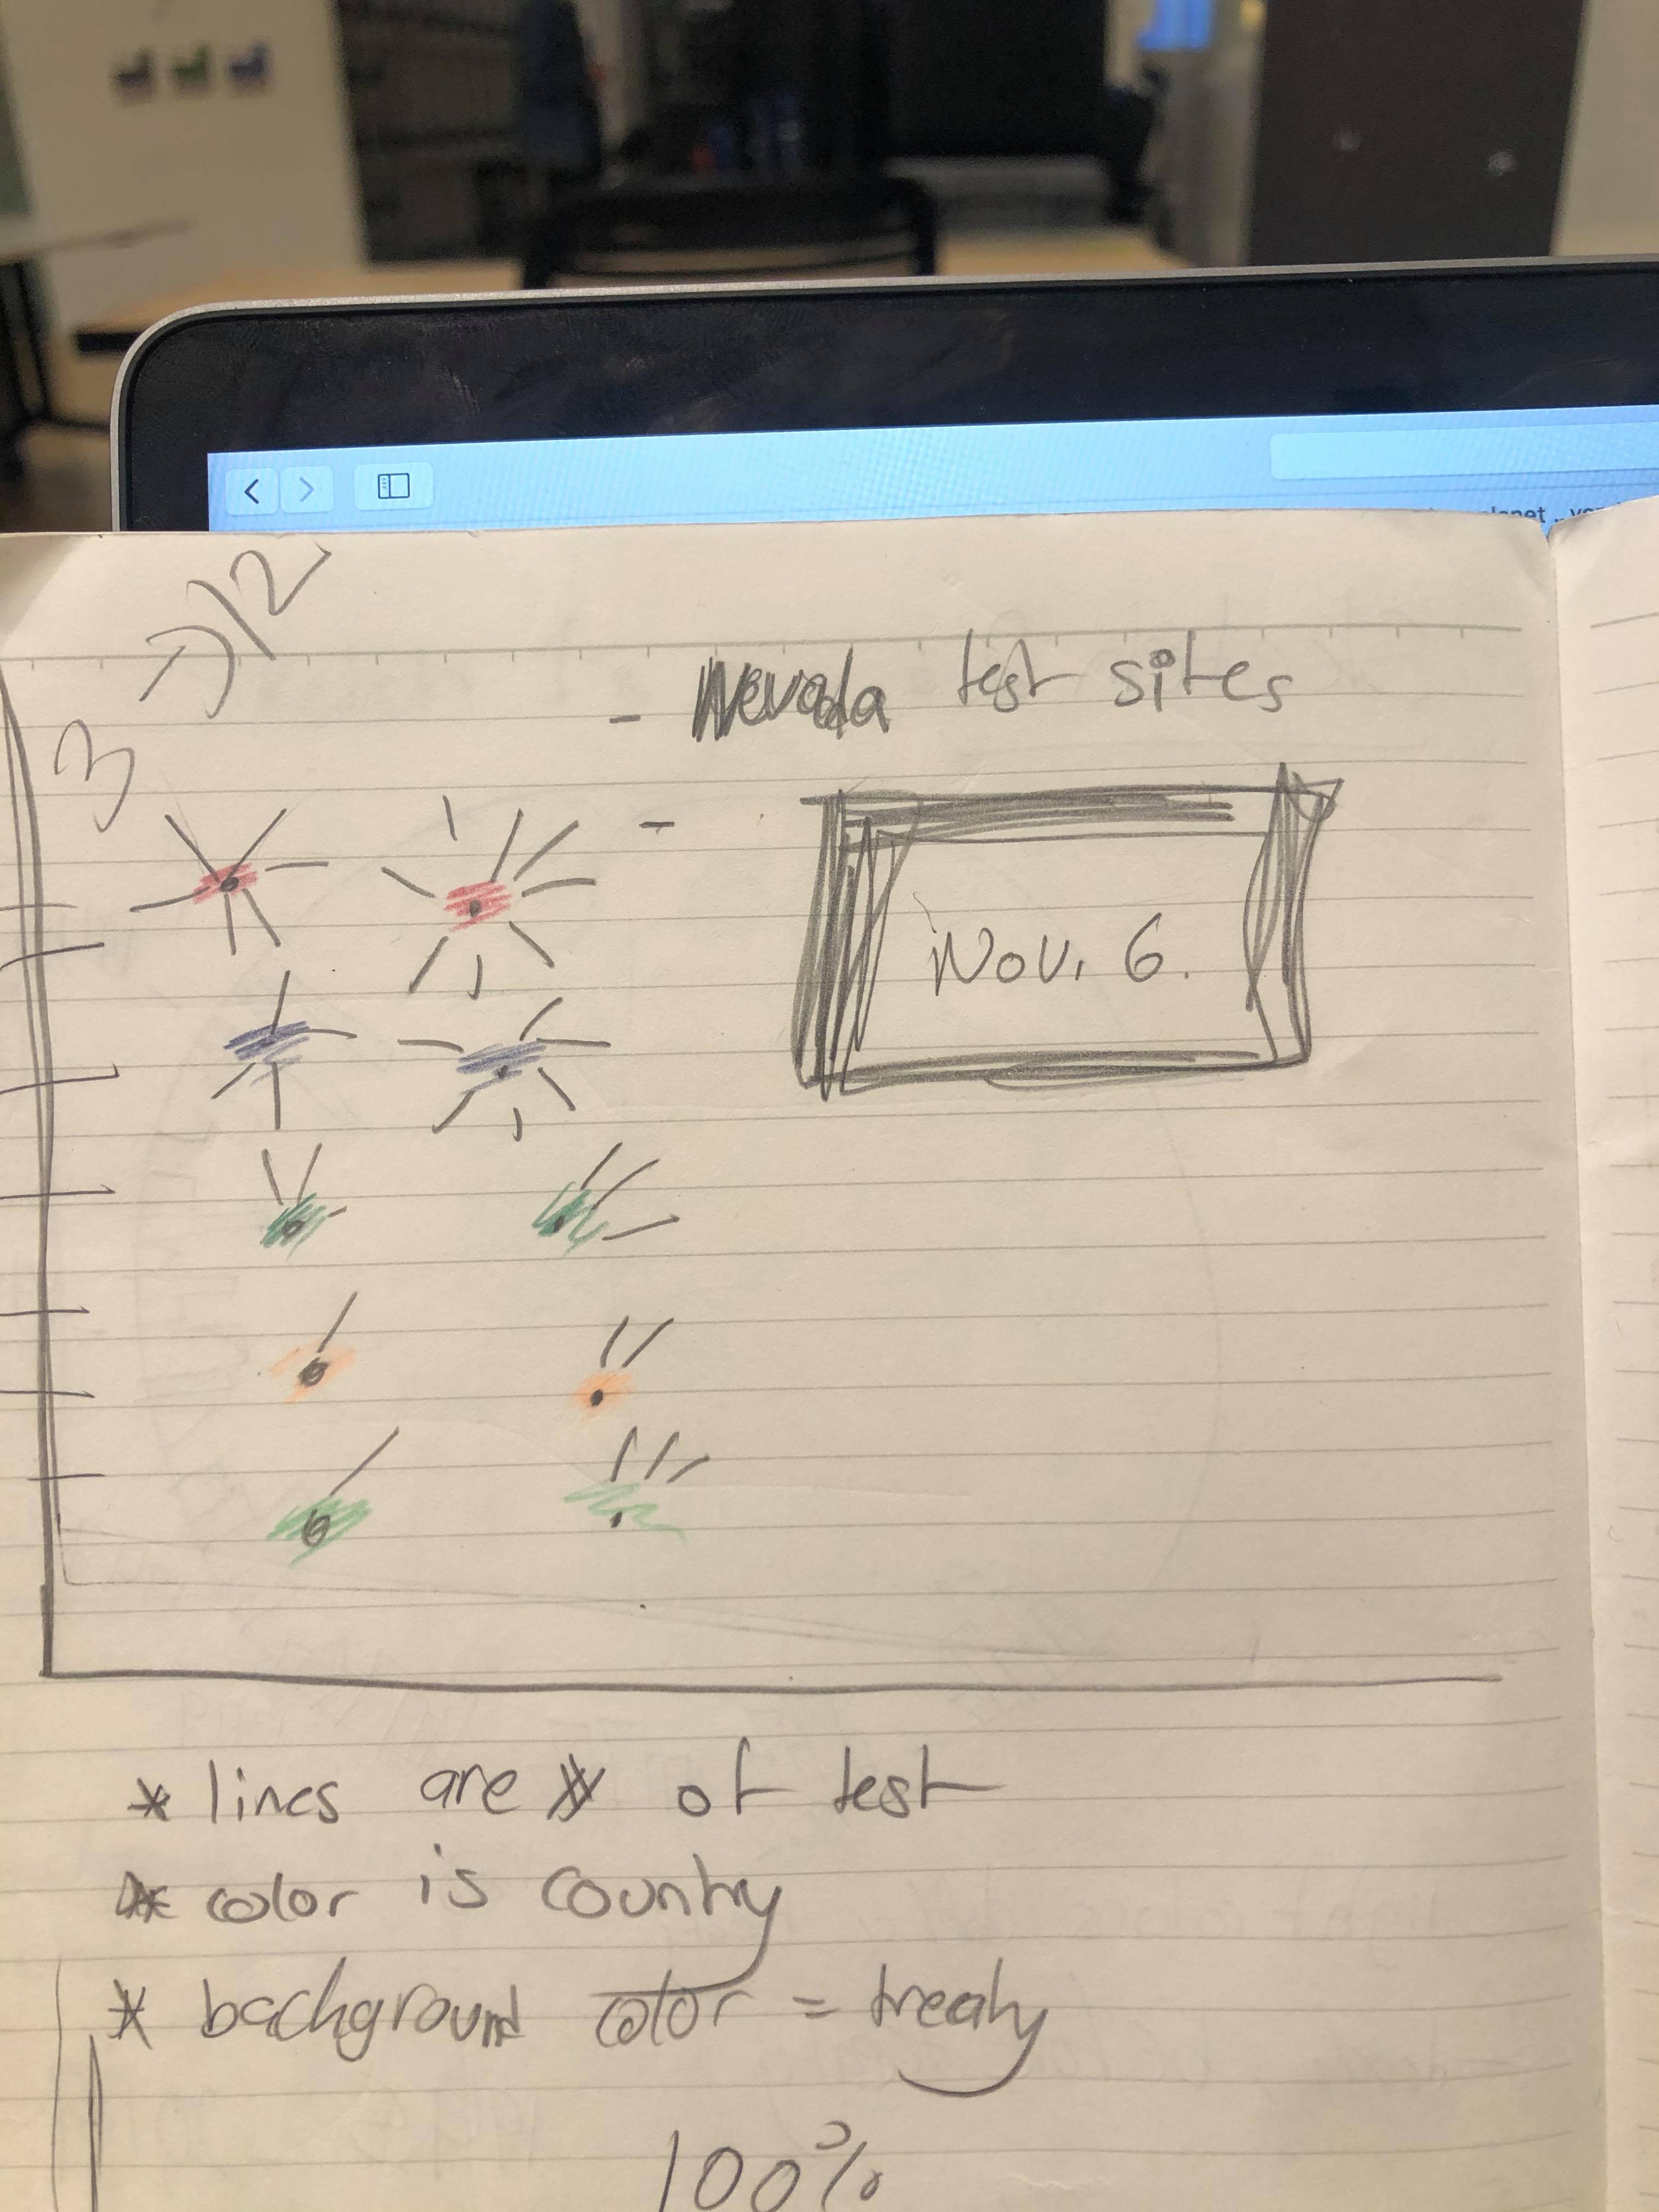 - Nevada test sites
3
-
Nov. 6.
* lines are # of test
* color is country
* background color = treaty
100%